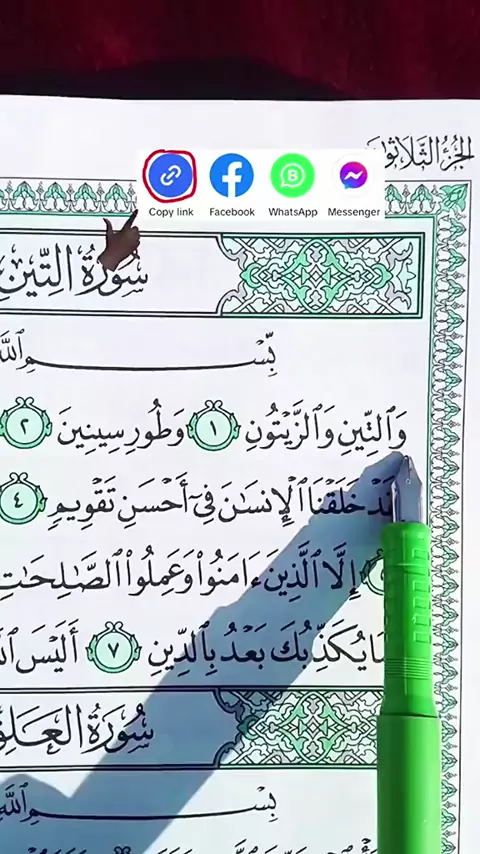 الجزء الثلاثون
Copy link
Facebook
WhatsApp
Messenger
سُورَةُ التِّينِ
بِّسْمِ ٱللَّهِ
وَٱلتِّينِ وَٱلزَّيْتُونِ ١ وَطُورِ سِينِينَ ٢
خَلَقْنَا ٱلْإِنسَٰنَ فِىٓ أَحْسَنِ تَقْوِيمٍ ٤
إِلَّا ٱلَّذِينَ ءَامَنُوا۟ وَعَمِلُوا۟ ٱلصَّٰلِحَٰتِ
يُكَذِّبُكَ بَعْدُ بِٱلدِّينِ ٧ أَلَيْسَ
سُورَةُ العَلَقِ
بِّسْمِ ٱللَّهِ